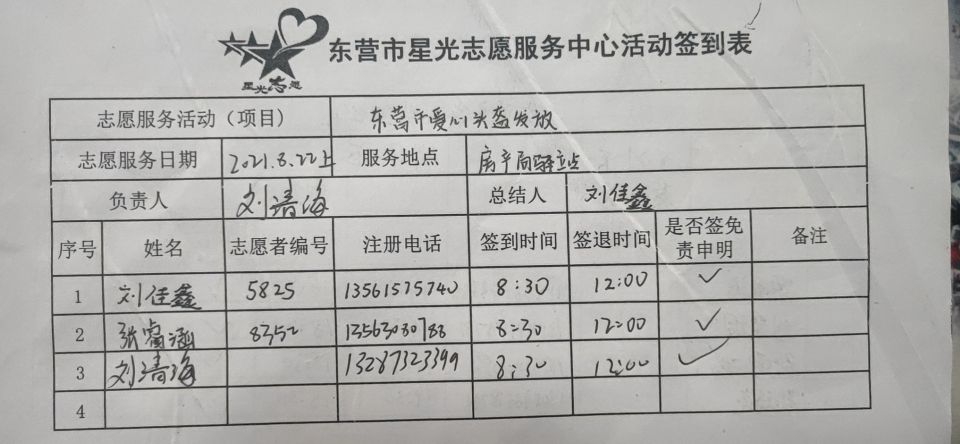 星光志愿
东营市星光志愿服务中心活动签到表
志愿服务活动（项目） 东营市爱心头盔发放
志愿服务日期 2021.8.22上 服务地点 房产局站
负责人 刘清海 总结人 刘佳鑫
序号 姓名 志愿者编号 注册电话 签到时间 签退时间 是否签免责申明 备注
1 刘佳鑫 5825 13561575740 8:30 12:00 ✓
2 张睿涵 8352 13563080788 8:30 12:00 ✓
3 刘清海 13287323399 8:30 12:00 ✓
4